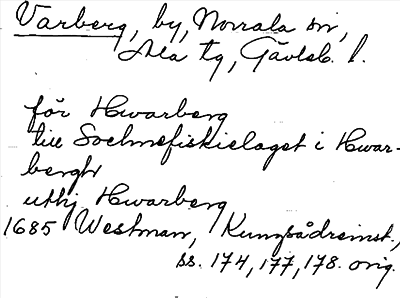 Varberg, by, Norrala sn,
Ala tg, Gävleb. l.
för Hwarberg
till Soelmefiskielaget i Hwar-
bergh
uthj Hwarberg
1685 Westman, Kungsådreinst.,
ss. 174, 177, 178. orig.